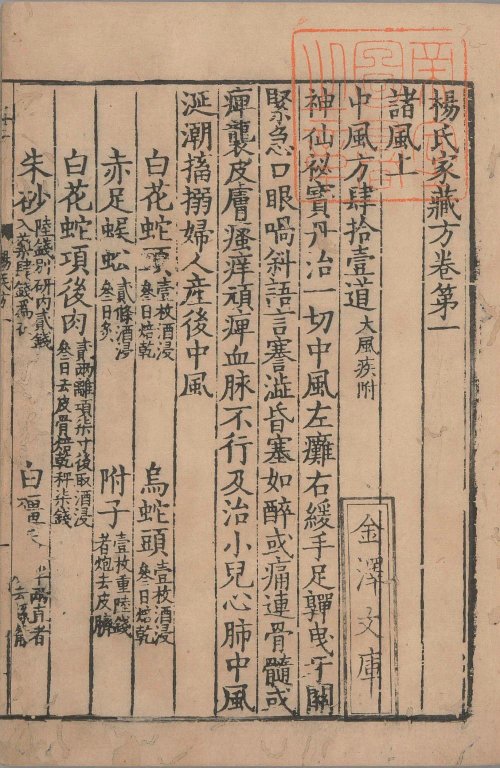 楊氏家藏方卷第一
諸風上
中風方肆拾壹道 大風疾附
金澤文庫
神仙祕寶丹治一切中風左癱右緩手足嚲曳牙關
緊急口眼喎斜語言蹇澁昏塞如醉或痛連骨髓或
痺襲皮膚瘙痒頑痺血脉不行及治小兒心肺中風
涎潮搐搦婦人産後中風
白花蛇頭 壹枚酒浸叁日焙乾 烏蛇頭 壹枚酒浸叁日焙乾
赤足蜈蚣 貳條酒浸叁日 附子 壹枚重陸錢者炮去皮臍
白花蛇項後肉 貳兩離項柒寸後取酒浸叁日去皮骨焙乾秤柒錢
朱砂 陸錢別研內貳錢入藥肆錢爲衣 白殭